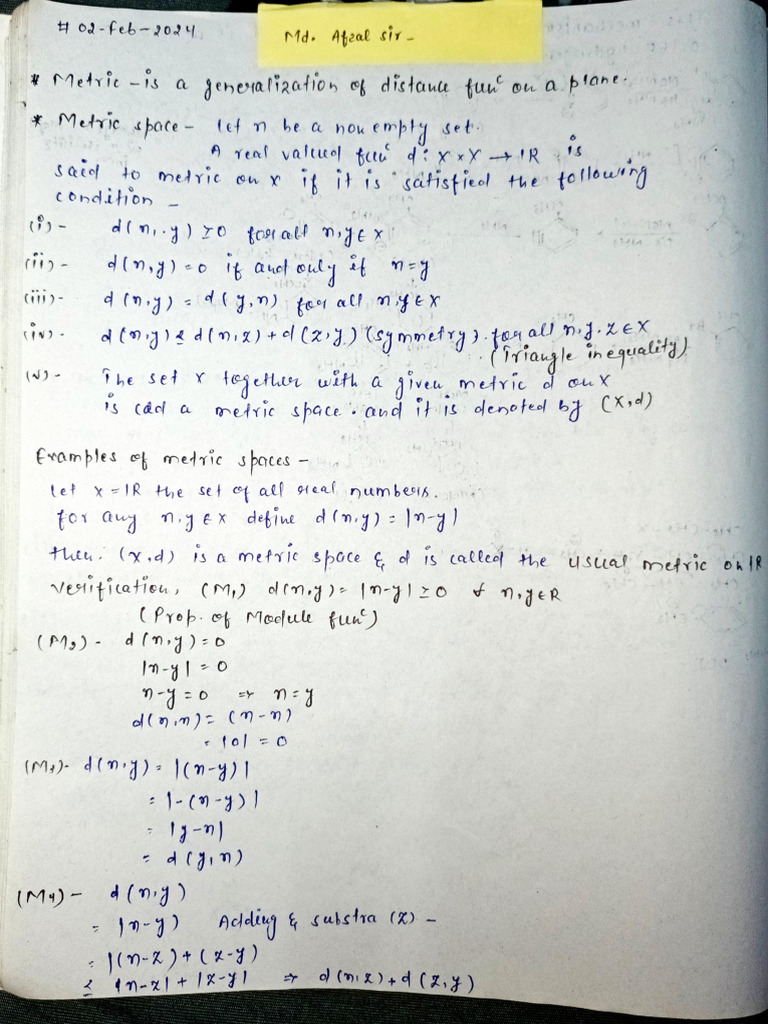 # 02-Feb-2024
Md. Afzal sir-
* Metric - is a generalization of distance funᶜ on a plane.
* Metric space - let n be a non empty set.
A real valued funᶜ d: X × X → IR is
said to metric on x if it is satisfied the following
condition -
(i) - d(n,y) ≥ 0 for all n,y ∈ X
(ii) - d(n,y) = 0 if and only if n = y
(iii) - d(n,y) = d(y,n) for all n,y ∈ X
(iv) - d(n,y) ≤ d(n,z) + d(z,y) (symmetry). for all n,y,z ∈ X
(Triangle inequality)
(v) - The set x together with a given metric d on x
is cad a metric space. and it is denoted by (X,d)
Examples of metric spaces -
let x = IR the set of all real numbers.
for any n,y ∈ X define d(n,y) = |n-y|
then. (x,d) is a metric space & d is called the usual metric on IR
verification, (M₁) d(n,y) = |n-y| ≥ 0 ∀ n,y ∈ R
(Prop. of Module funᶜ)
(M₂) - d(n,y) = 0
|n-y| = 0
n-y = 0 ⇒ n = y
d(n,n) = (n-n)
= |0| = 0
(M₃)- d(n,y) = |(n-y)|
= |-(n-y)|
= |y-n|
= d(y,n)
(M₄) - d(n,y)
= |n-y) Adding & substra (z) -
= |(n-z) + (z-y)
≤ |n-z| + |z-y| ⇒ d(n,z) + d(z,y)